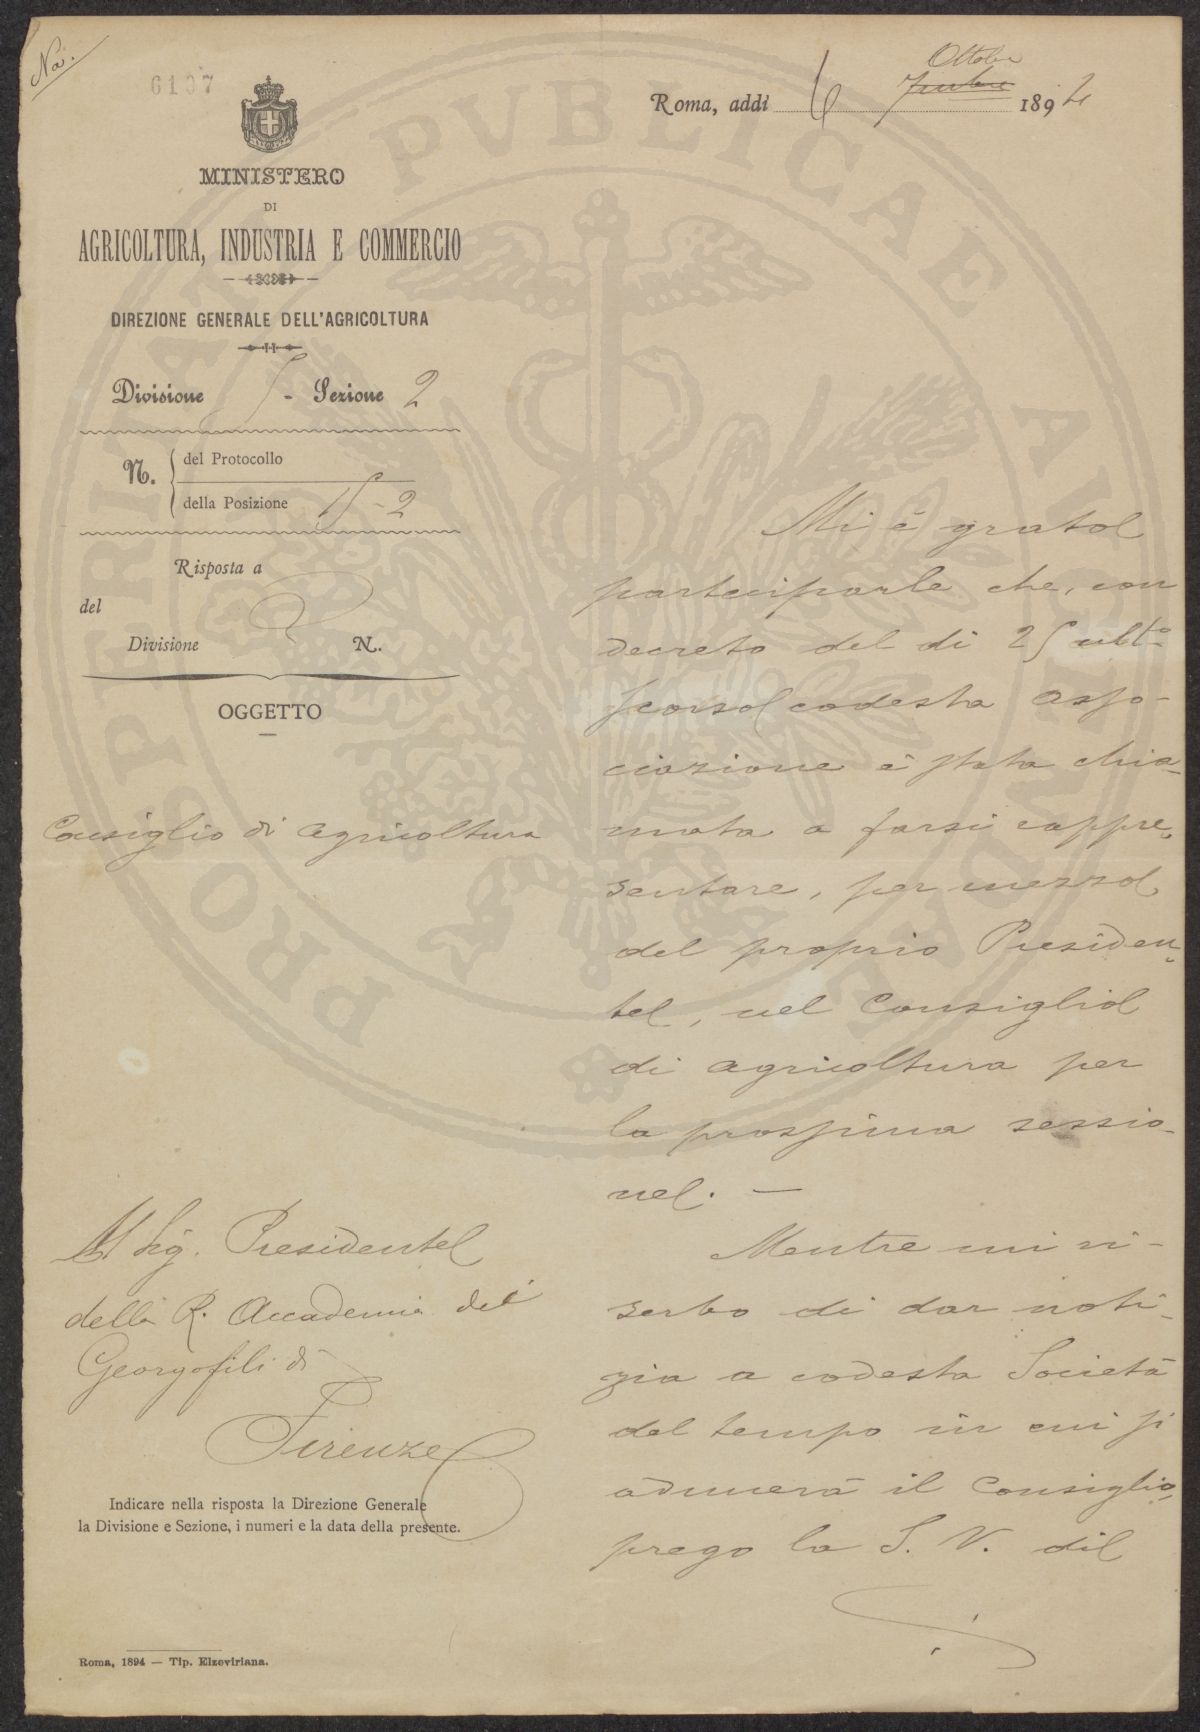 Na.
6107
MINISTERO
DI
AGRICOLTURA, INDUSTRIA E COMMERCIO
DIREZIONE GENERALE DELL'AGRICOLTURA
Divisione 5 - Sezione 2
N. del Protocollo
della Posizione 15-2
Risposta a
del
Divisione N.
OGGETTO
Consiglio di agricoltura
Al Sig. Presidente
della R. Accademia dei
Georgofili di
Firenze
Indicare nella risposta la Direzione Generale
la Divisione e Sezione, i numeri e la data della presente.
Roma, 1894 — Tip. Elzeviriana.
Ottobre
Roma, addì 6 1894
Mi è grato
parteciparle che, con
decreto del dì 25 ultº
scorso codesta asso-
ciazione è stata chia-
mata a farsi rappre-
sentare, per mezzo
del proprio Presiden-
te, nel Consiglio
di agricoltura per
la prossima sessio-
ne. —
Mentre mi ri-
serbo di dar noti-
zia a codesta Società
del tempo in cui si
adunerà il Consiglio,
prego la S. V. di
PROSPERITATI PVBLICAE AVGENDAE